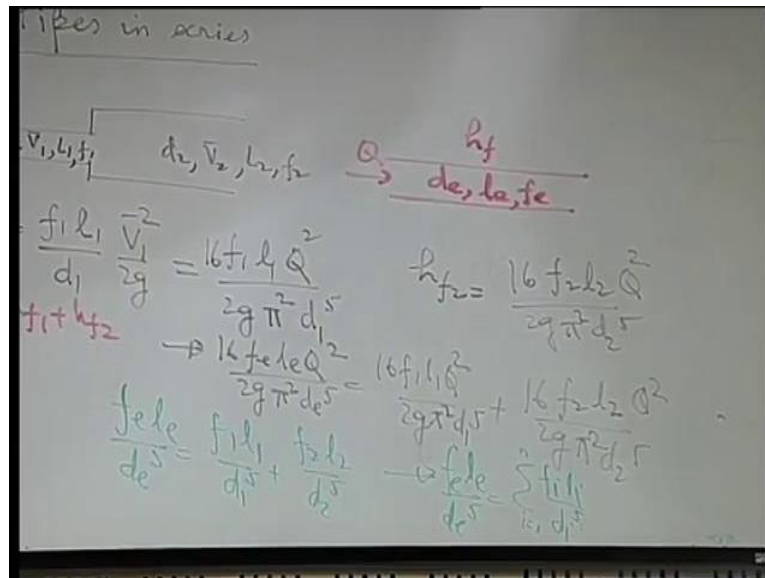 Pipes in series
V̄₁, L₁, f₁ d₂, V̄₂, L₂, f₂
Q → h_f
de, le, fe
= f₁l₁/d₁ V̄₁²/2g = 16f₁l₁Q²/2gπ²d₁⁵ h_f₂ = 16f₂l₂Q²/2gπ²d₂⁵
f₁ + h_f₂
→ 16feleQ²/2gπ²de⁵ = 16f₁l₁Q²/2gπ²d₁⁵ + 16f₂l₂Q²/2gπ²d₂⁵
fele/de⁵ = f₁l₁/d₁⁵ + f₂l₂/d₂⁵ → fele/de⁵ = Σⁿᵢ₌₁ fᵢlᵢ/dᵢ⁵